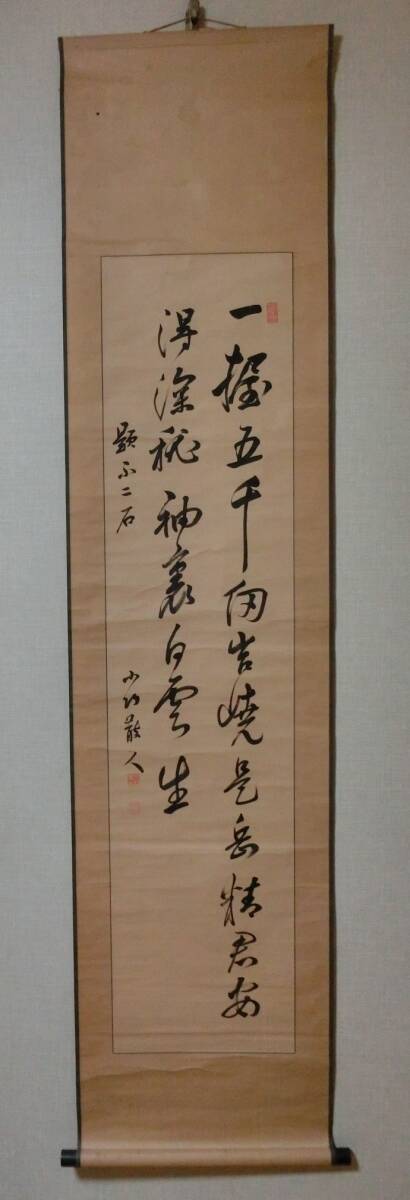 一握五千仞岧嶢是岳精君安
得深秘袖裏白雲生
題不二石
小竹散人